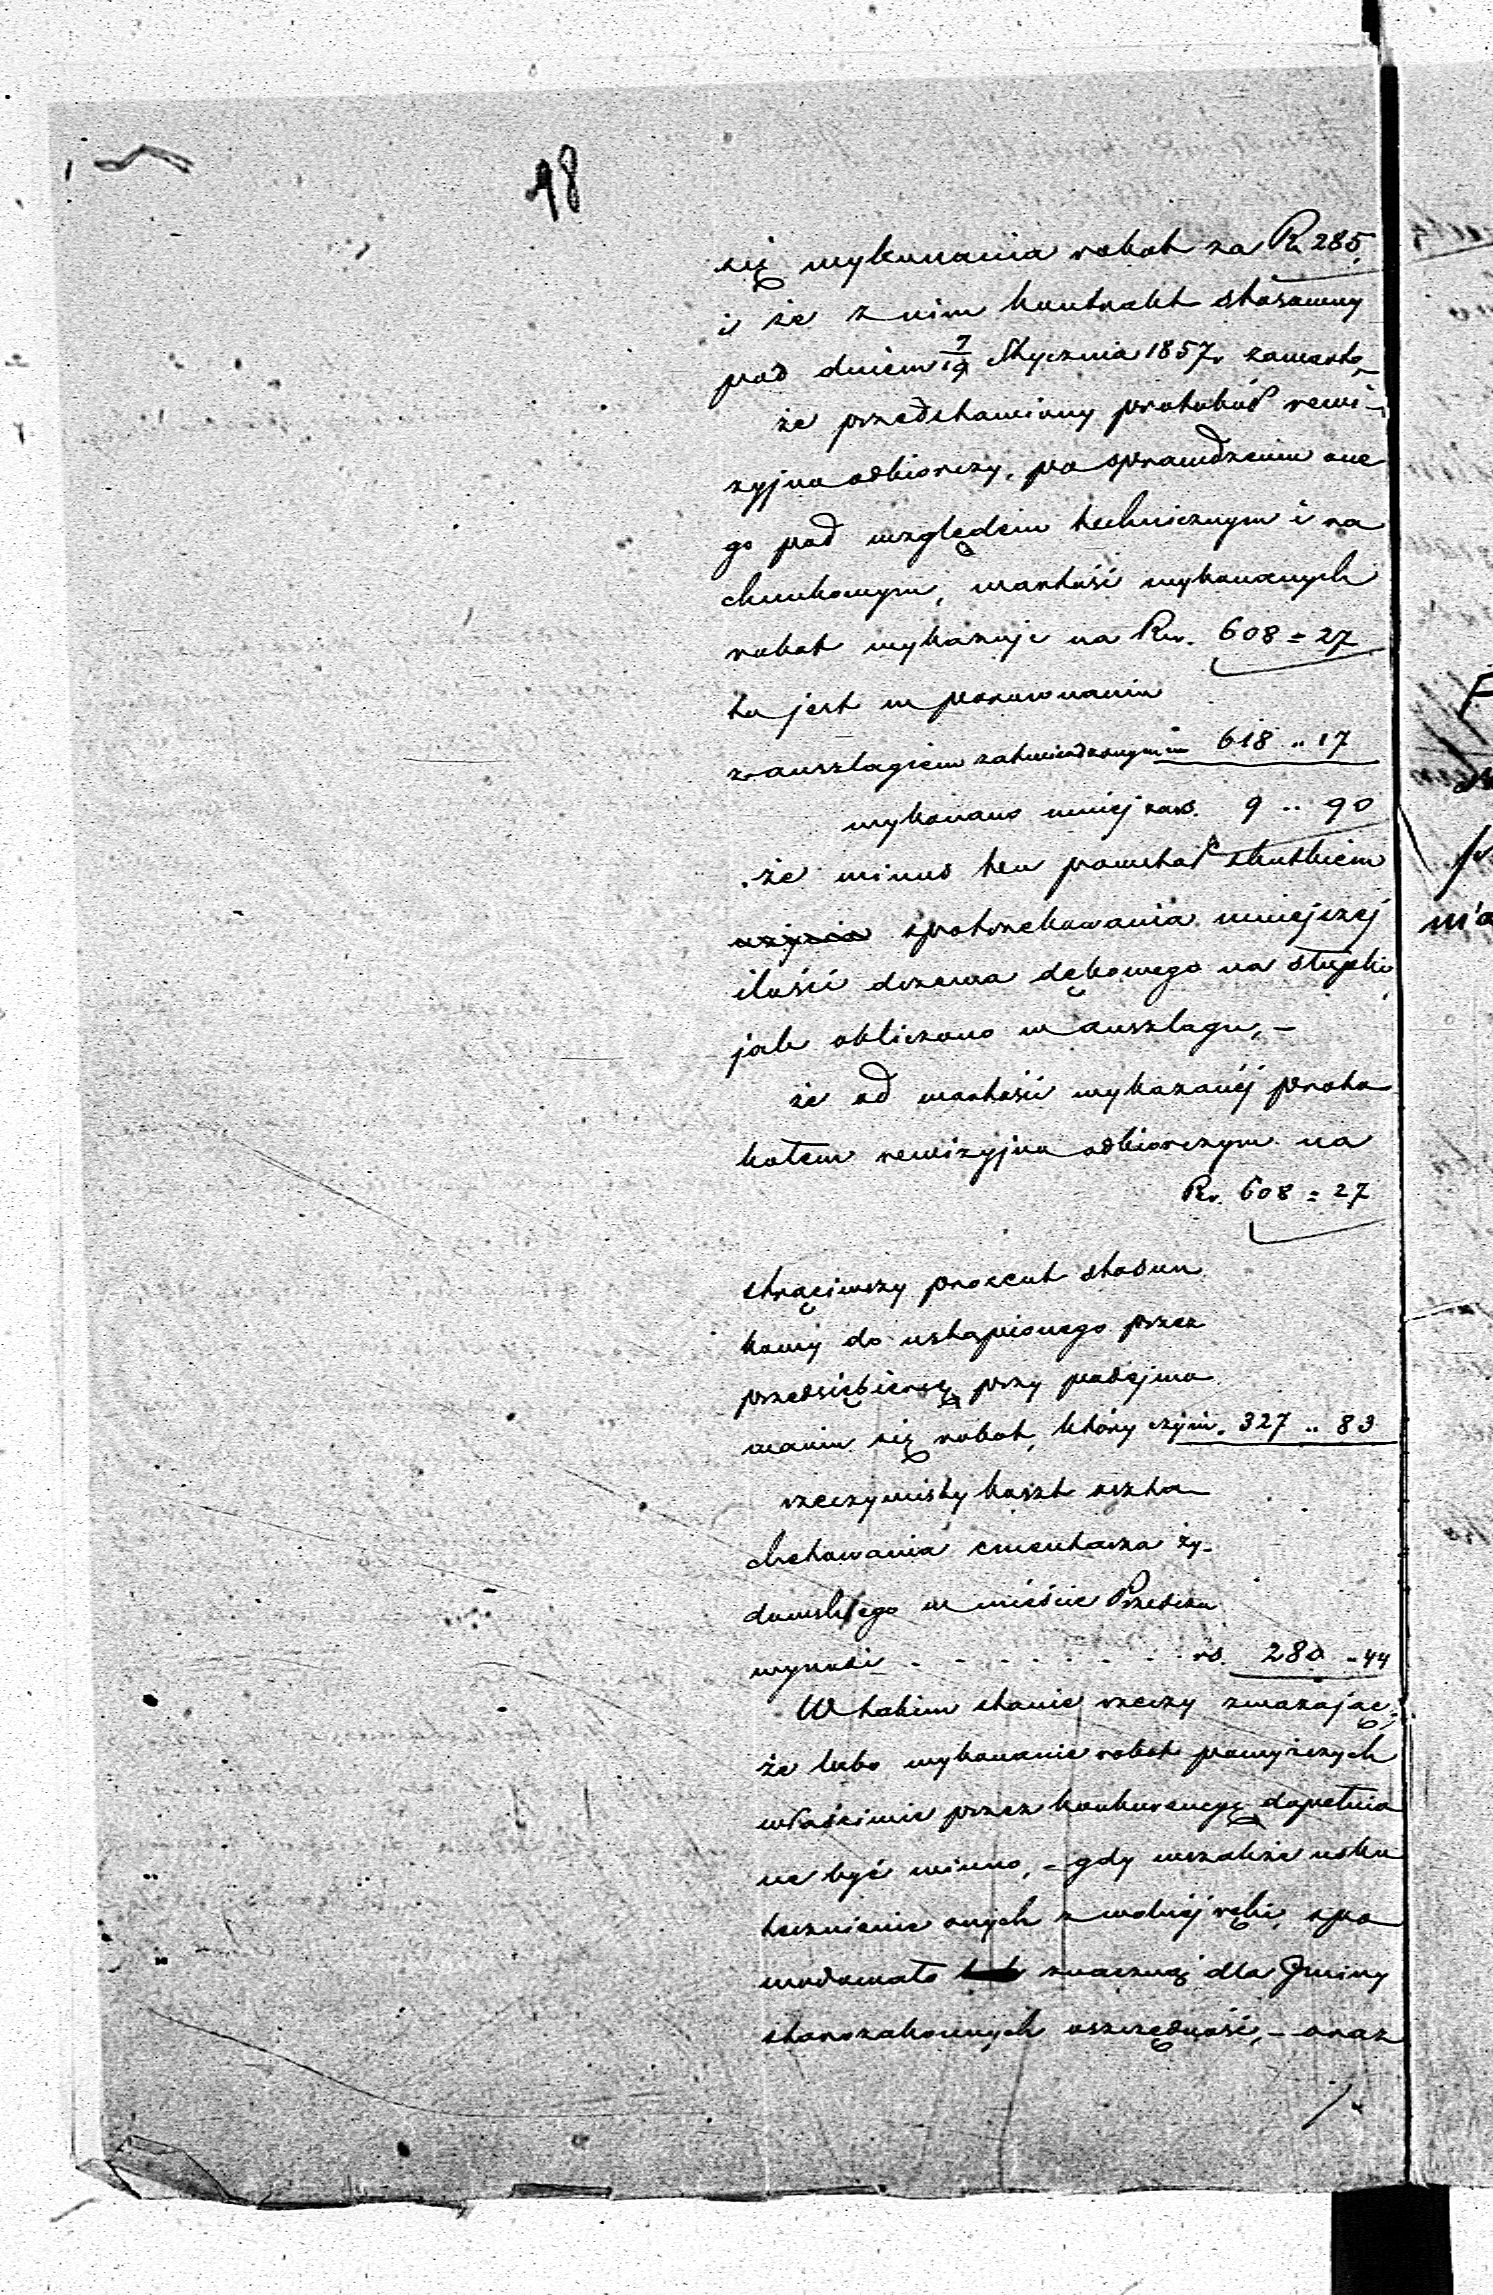 48
się wykonania robot za Rs 285,
i że z nim kontrakt stosowny
pod dniem 7/19 Stycznia 1857 r zawarto,-
że przedstawiony protokół rewi-
zyjno odbiorczy, po sprawdzeniu one
go pod względem technicznym i ra
chunkowym, wartość wykonanych
robot wykazuje na Rs. 608 = 27
to jest w porównaniu
z anszlagiem zatwierdzonym 618 .. 17
wykonano mniej za rs. 9 .. 90
że minus ten powstał skutkiem
użycia spotrzebowania mniejszej
ilości drzewa dębowego na słupki
jak obliczono w anszlagu,-
że od wartości wykazanéj proto
kołem rewizyjno odbiorczym na
Rs. 608 = 27
strąciwszy procent stosun
kowy do ustąpionego przez
przedsiębiercę przy podejmo
waniu się robot, który czyni. 327 .. 83
rzeczywisty koszt oszta
chetowania cmentarza ży-
dowskiego w mieście
wynosi . . . . . . . . rs. 280 - 44
W takim stanie rzeczy zważając,
że lubo wykonanie robot powyższych
właściwie przez konkurencyę dopełnio
ne być winno, - gdy wszakże usku
tecznienie onych z wolnéj ręki, spo
wodowało znaczną dla Gminy
starozakonnych oszczędność, - oraz